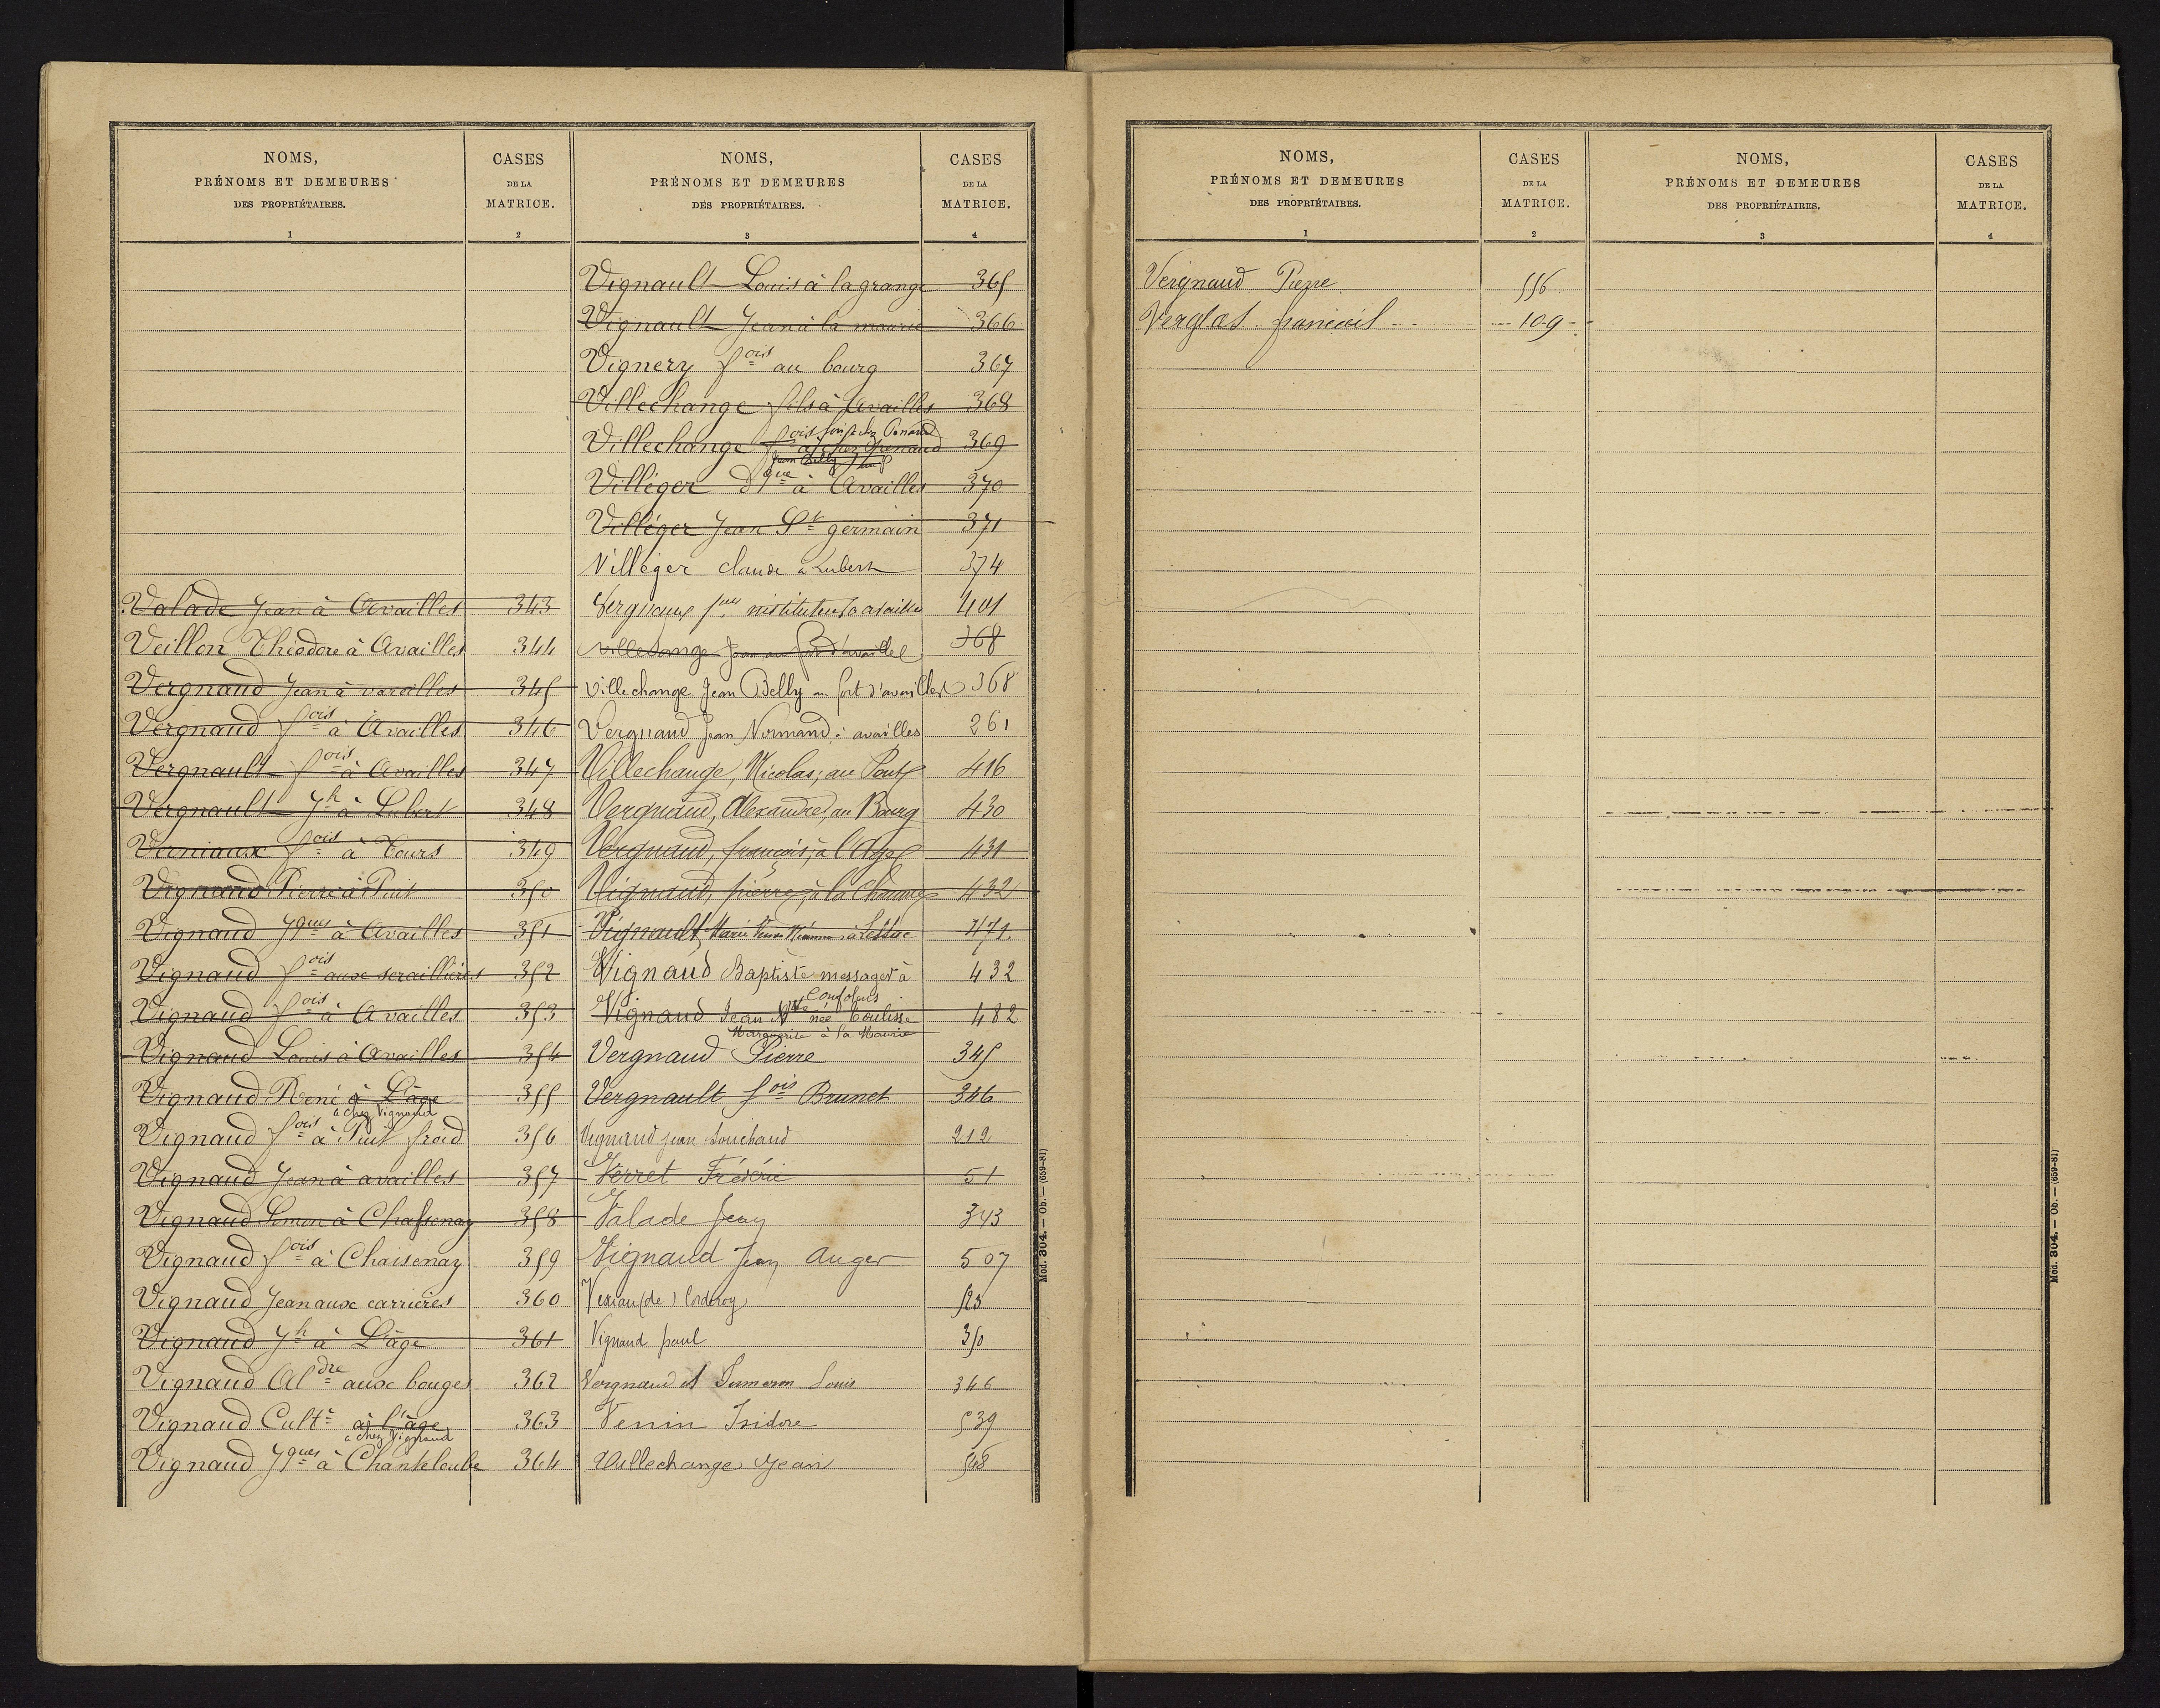 NOMS,
PRÉNOMS ET DEMEURES
DES PROPRIÉTAIRES.
1
CASES
DE LA
MATRICE.
2
Valade Jean à Availles 343
Veillon Théodore à Availles 344
Vergnaud Jean à varailles 345
Vergnaud fois à Availles 346
Vergnault fois à Availles 347
Vergnault Jh à Lubert 348
Verniaux fois à Tours 349
Vignaud Pierre à Puit 350
Vignaud Jques à Availles 351
Vignaud fois aux seraillières 352
Vignaud fois à Availles 353
Vignaud Louis à Availles 354
Vignaud René à L'âge 355
à chez Vignaud
Vignaud fois à Puit froid 356
Vignaud Jean à availles 357
Vignaud Simon à Chassenay 358
Vignaud fois à Chaisenay 359
Vignaud Jean aux carrières 360
Vignaud Jh à L'âge 361
Vignaud Aldre aux bouges 362
Vignaud Culte à l'âge 363
à chez Vignaud
Vignaud Jques à Chanteloube 364
NOMS,
PRÉNOMS ET DEMEURES
DES PROPRIÉTAIRES.
3
CASES
DE LA
MATRICE.
4
Vignault Louis à la grange 365
Vignault Jean à la maurie 366
Vignery fois au bourg 367
Villechange fils à Availles 368
Villechange fois chez Grenaud 369
Jean Belly
Villéger dque à Availles 370
Villéger Jean St germain 371
Villéger claude à Lubert 374
Vergnaux instituteur à availles 401
Villechange Jean au fort d'availles 368
Villechange Jean Belly au fort d'availles 368
Vergnaud Jean Normand à availles 261
Villechange, Nicolas, au Pont 416
Vergnaud, Alexandre, au Bourg 430
Vergnaud, françois, à l'Age 431
Vignaud, pierre, à la Chaume 432
Vignault, Marie à Lessac 471
Vignaud Baptiste messager à 432
Confolens
Vignaud Jean Vve née Coulisse 482
Marguerite à la Maurie
Vergnaud Pierre 345
Vergnault fois Brunet 346
Vignaud jean Souchaud 212
Verret Frédéric 51
Valade Jean 343
Vignaud Jean Auger 507
Vexiau (de) Corderoy 525
Vignaud paul 350
Vergnaud et Sumeron Louis 346
Venin Isidore 539
Villechange Jean 548
Mod. 304. — Ob. — (659-81)
NOMS,
PRÉNOMS ET DEMEURES
DES PROPRIÉTAIRES.
1
CASES
DE LA
MATRICE.
2
Vergnaud Pierre 556
Verglas francois 109
NOMS,
PRÉNOMS ET DEMEURES
DES PROPRIÉTAIRES.
3
CASES
DE LA
MATRICE.
4
Mod. 304. — Ob. — (659-81)